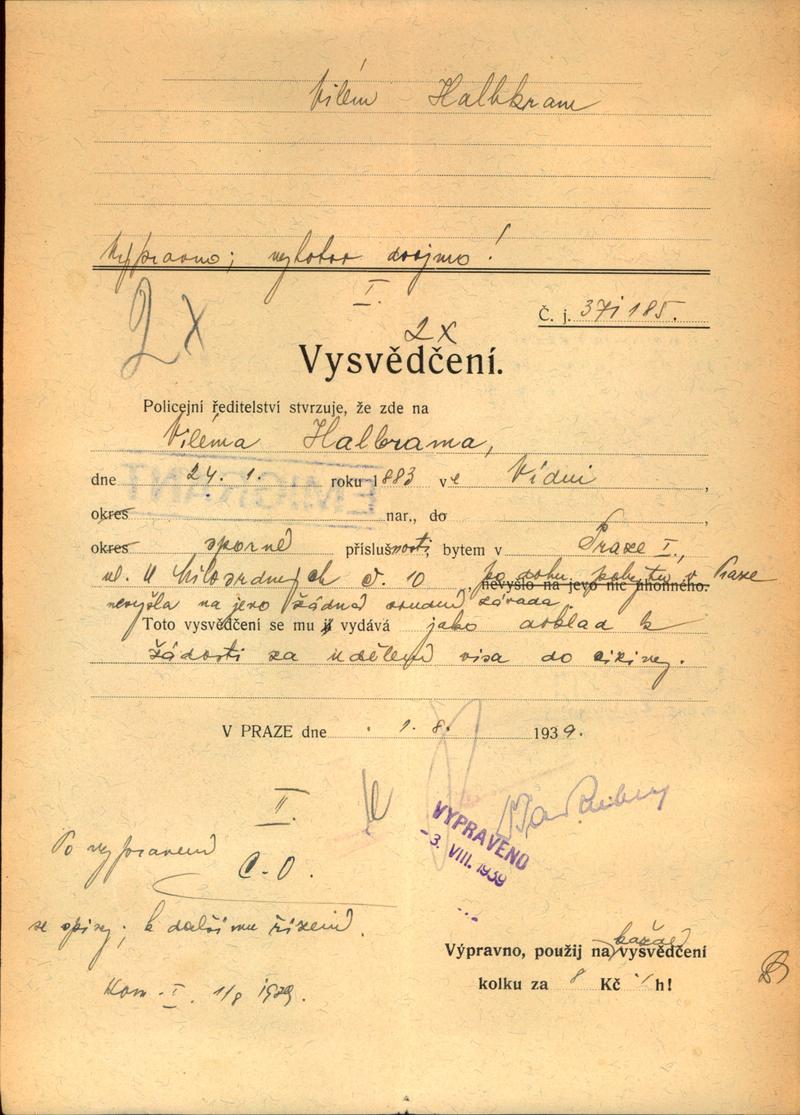 Vilém Halbkram
Výpravno; vyhotov dvojmo!
I.
2x
Č. j. 37i185.
2x
Vysvědčení.
Policejní ředitelství stvrzuje, že zde na
Viléma Halbrama,
dne 24. 1. roku 1883 ve Vídni,
EMIGRANT
okres nar., do
okres sporné příslušnosti, bytem v Praze I.,
ul. U Milosrdných č. 10, nevyšlo na jevo nic úhonného. po dobu pobytu v Praze
nevyšla na jevo žádná soudní závada.
Toto vysvědčení se mu ji vydává jako doklad k
žádosti za udělení visa do ciziny.
V PRAZE dne 1. 8. 1939.
II.
VYPRAVENO
-3. VIII. 1939
Po vypravení
C.O.
se spisy; k dalšímu řízení.
Kom. I. 1/8 1939.
Výpravno, použij na každé vysvědčení
kolku za 8 Kč h!